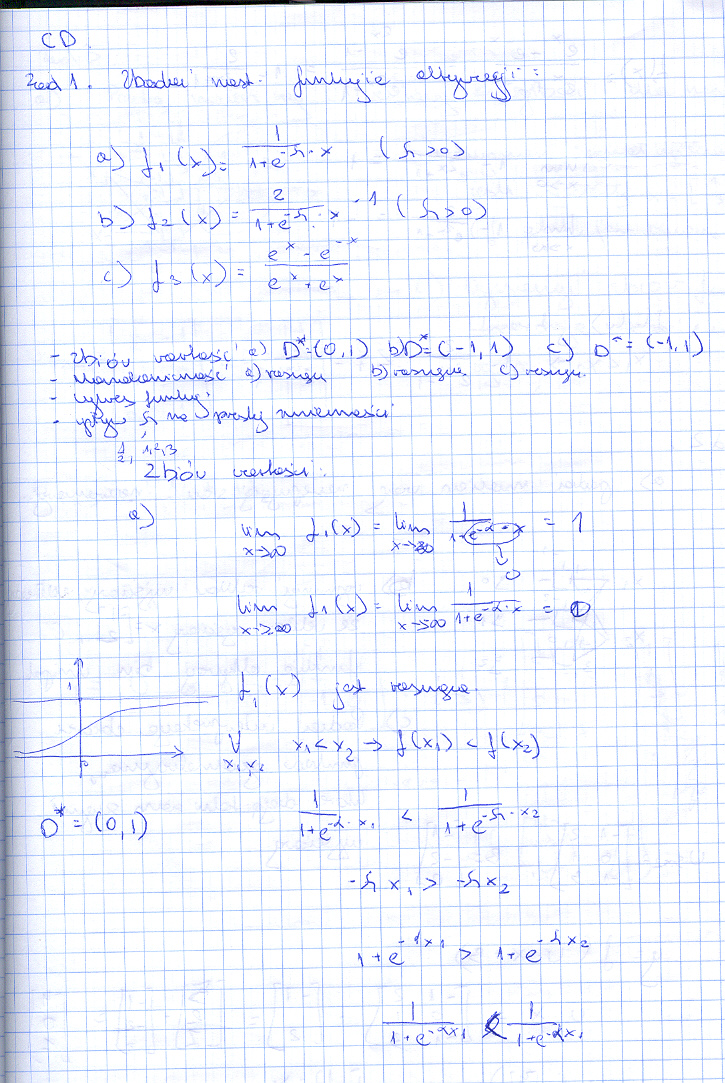 CD.
Zad 1. Zbadać nast. funkcje aktywacji:
a) f₁(x) = 1/(1+e^(-λ·x)) (λ>0)
b) f₂(x) = 2/(1+e^(-λ·x)) - 1 (λ>0)
c) f₃(x) = (e^x - e^(-x))/(e^x + e^x)
- Zbiór wartości a) D* = (0,1) b) D* = (-1,1) c) D* = (-1,1)
- Monotoniczność a) rosnąca b) rosnąca c) rosnąca
- wykres funkcji
- wpływ λ na przebieg zmienności
1/2, 1, 2, 3
Zbiór wartości:
a) lim x→∞ f₁(x) = lim x→∞ 1/(1+e^(-λ·x)) = 1
0
lim x→-∞ f₁(x) = lim x→-∞ 1/(1+e^(-λ·x)) = 0
1
f₁(x) jest rosnąca.
0
∀ x₁,x₂ x₁<x₂ → f(x₁) < f(x₂)
D* = (0,1)
1/(1+e^(-λ·x₁)) < 1/(1+e^(-λ·x₂))
-λx₁ > -λx₂
1+e^(-λx₁) > 1+e^(-λx₂)
1/(1+e^(-λx₁)) < 1/(1+e^(-λx₁))